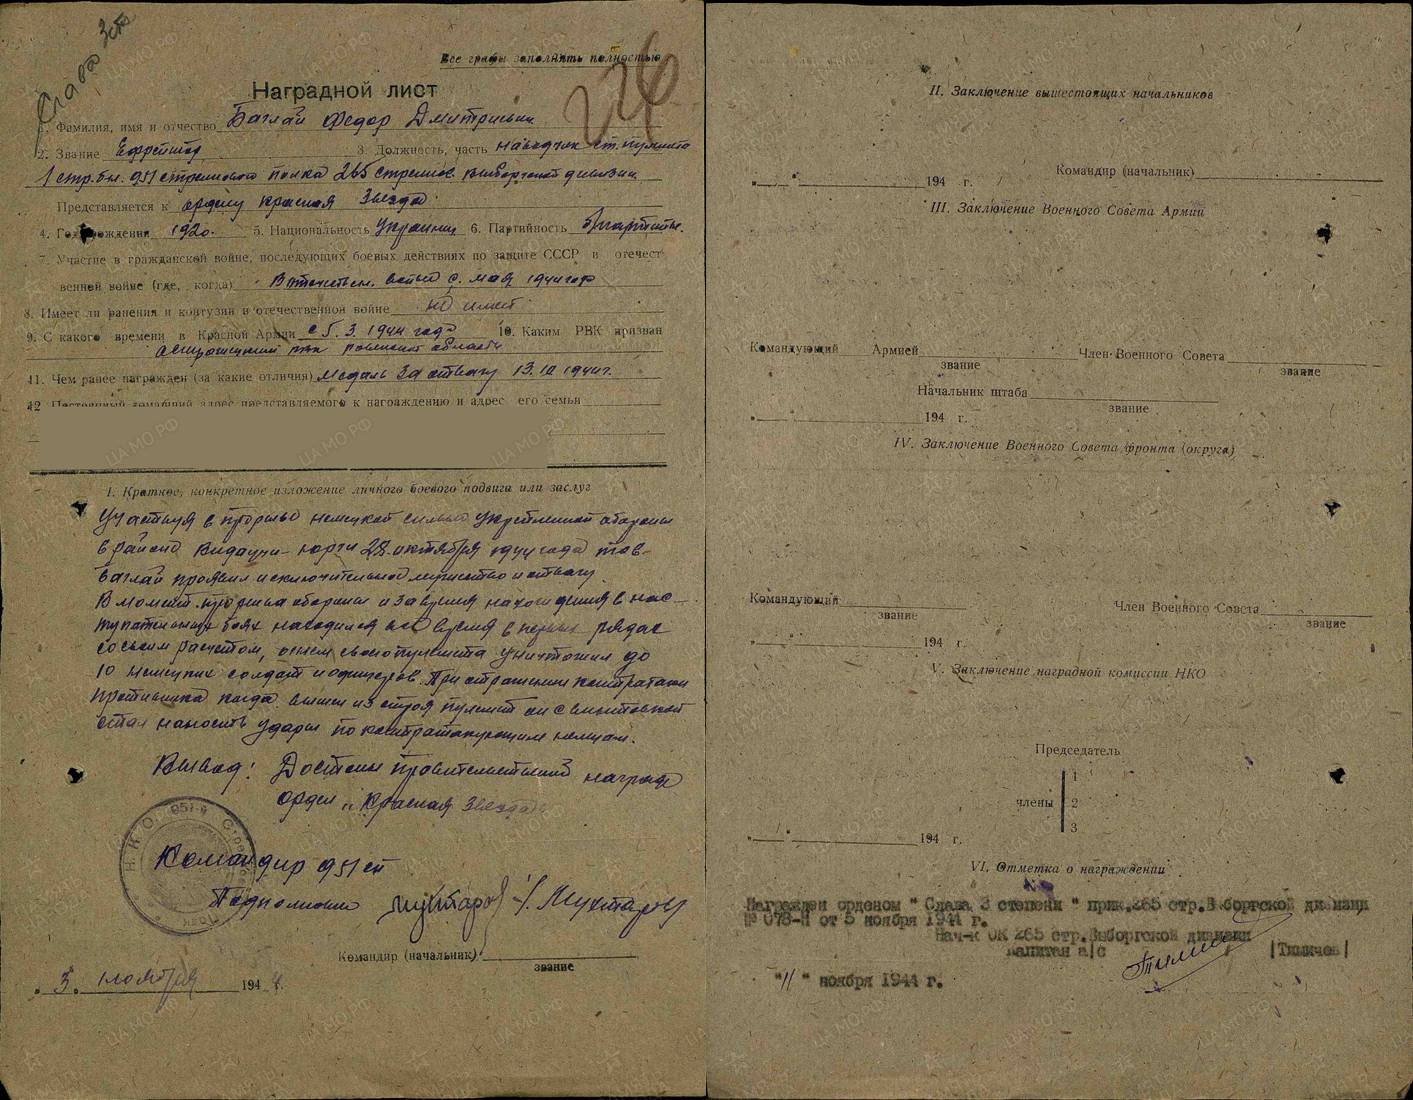 Слава 3 ст
Все графы заполнять полностью
226
Наградной лист
1. Фамилия, имя и отчество Баглай Федор Дмитриевич
2. Звание Ефрейтор 3. Должность, часть наводчик ст. пулемета
1 стр. бн. 951 стрелкового полка 265 стрелков. Выборгской дивизии
Представляется к ордену Красная Звезда
4. Год рождения 1920. 5. Национальность Украинец 6. Партийность б/партийн.
7. Участие в гражданской войне, последующих боевых действиях по защите СССР и отечест
венной войне (где, когда) В отечествен. войне с мая 1944 год
8. Имеет ли ранения и контузии в отечественной войне не имеет
9. С какого времени в Красной Армии с 5.3.1944 года 10. Каким РВК призван
рвк Ровенской области
11. Чем ранее награжден (за какие отличия) медаль За отвагу 13.10 1944 г.
12 Постоянный домашний адрес представляемого к награждению и адрес его семьи
I. Краткое, конкретное изложение личного боевого подвига или заслуг
Участвуя в прорыве немецкой сильно укрепленной обороны
в районе 28 октября 1944 года тов.
Баглай проявил исключительное мужество и отвагу.
В момент прорыва обороны и за время нахождения в нас-
тупательных боях находился все время в первых рядах
со своим расчетом, огнем своего пулемета уничтожил до
10 немецких солдат и офицеров. При отражении контратаки
противника когда вышел из строя пулемет он с винтовкой
стал наносить удары по контратакующим немцам.
Вывод: Достоин правительственной награде
орден "Красная Звезда"
Н.К.О. 951-й Стрелковый Полк
Командир 951 сп
Подполковник Мухтаров /Мухтаров/
Командир (начальник)
звание
"3" ноября 1944 г.
II. Заключение вышестоящих начальников
Командир (начальник)
" " 194 г.
III. Заключение Военного Совета Армии
Командующий Армией Член Военного Совета
звание звание
Начальник штаба
звание
" " 194 г.
IV. Заключение Военного Совета фронта (округа)
Командующий Член Военного Совета
звание звание
" " 194 г.
V. Заключение наградной комиссии НКО
Председатель
1
члены 2
3
" " 194 г.
VI. Отметка о награждении
Награжден орденом "Слава 3 степени" прик. 265 стр. Выборгской дивизии
№ 078-Н от 5 ноября 1944 г.
Нач-к ОК 265 стр. Выборгской дивизии
капитан а/с |Тимичев|
"11" ноября 1944 г.
ЦА МО РФ